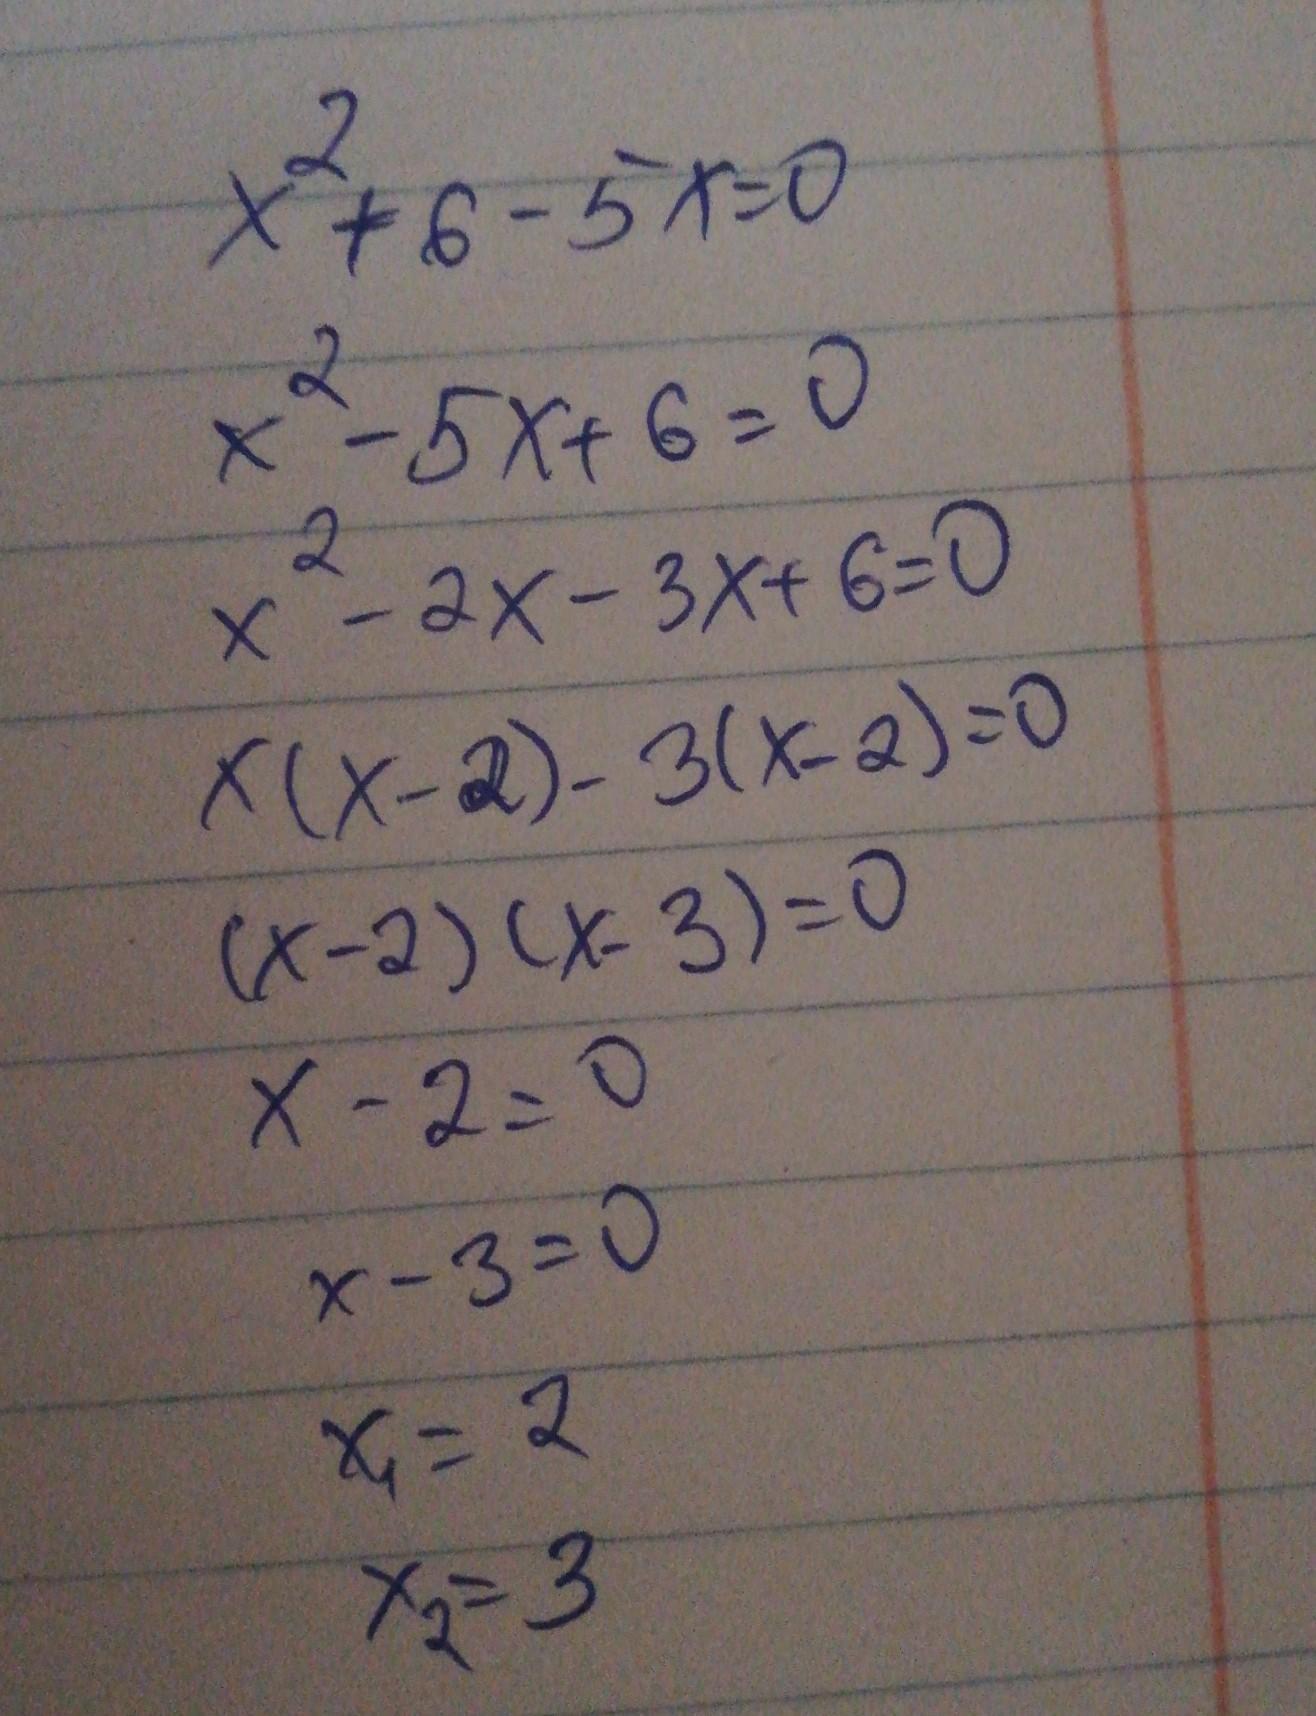 x²+6-5x=0
x²-5x+6=0
x²-2x-3x+6=0
x(x-2)-3(x-2)=0
(x-2)(x-3)=0
x-2=0
x-3=0
x₁=2
x₂=3